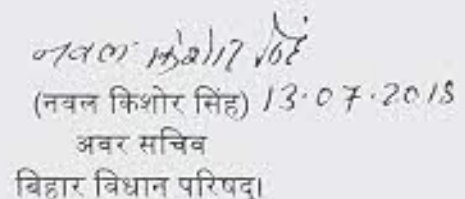 नवल किशोर सिंह
(नवल किशोर सिंह) 13.07.2018
अवर सचिव
बिहार विधान परिषद्।